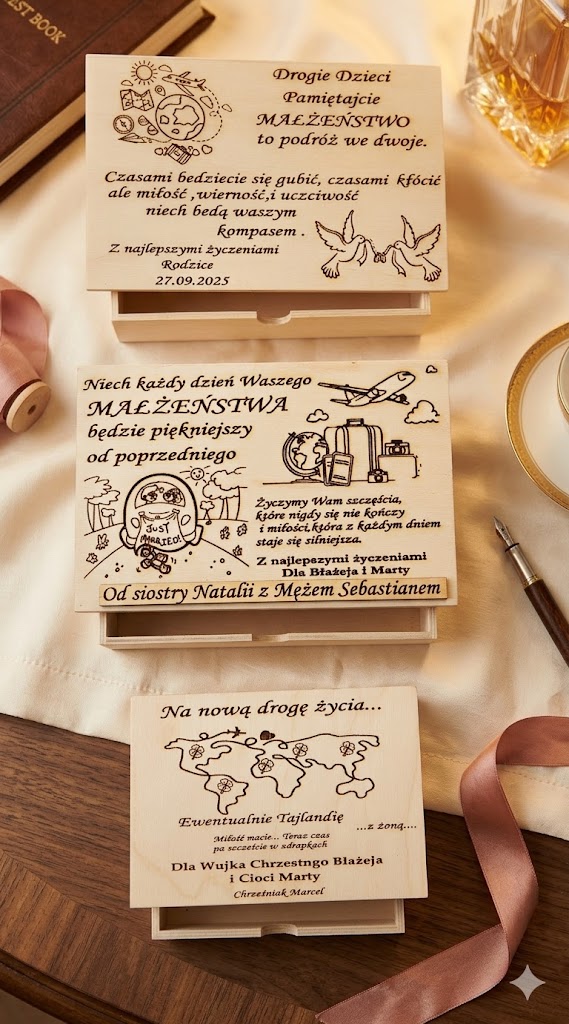 EST BOOK
Drogie Dzieci
Pamiętajcie
MAŁŻEŃSTWO
to podróż we dwoje.
Czasami bedziecie się gubić, czasami kłócić
ale miłość ,wierność,i uczciwość
niech bedą waszym
kompasem .
Z najlepszymi życzeniami
Rodzice
27.09.2025
Niech każdy dzień Waszego
MAŁŻEŃSTWA
będzie piękniejszy
od poprzedniego
JUST
MARRIED!
Życzymy Wam szczęścia,
które nigdy się nie kończy
i miłości,która z każdym dniem
staje się silniejsza.
Z najlepszymi życzeniami
Dla Błażeja i Marty
Od siostry Natalii z Mężem Sebastianem
Na nową drogę życia...
Ewentualnie Tajlandię
...z żoną....
Miłość macie... Teraz czas
pa szczęście w zdrapkach
Dla Wujka Chrzestngo Błażeja
i Cioci Marty
Chrześniak Marcel